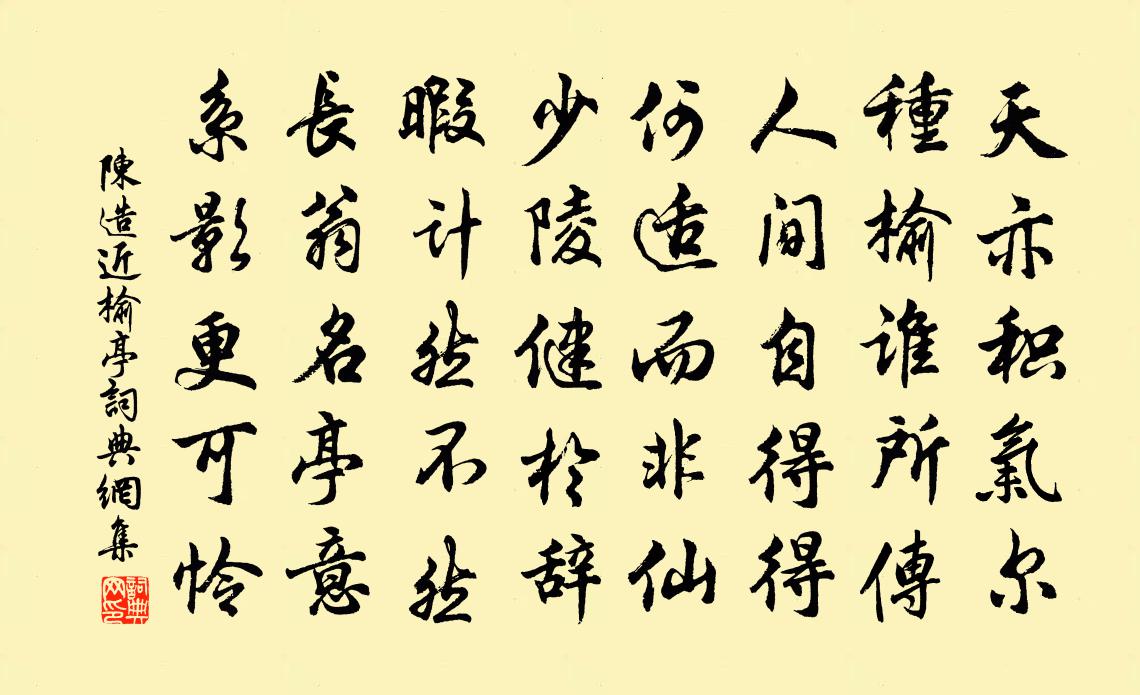 天亦积氣尔
種榆谁所傳
人间自得得
何适而非仙
少陵健於辞
暇计然不然
長翁名亭意
系影更可怜
陳造近榆亭詞典網集
詞典网印